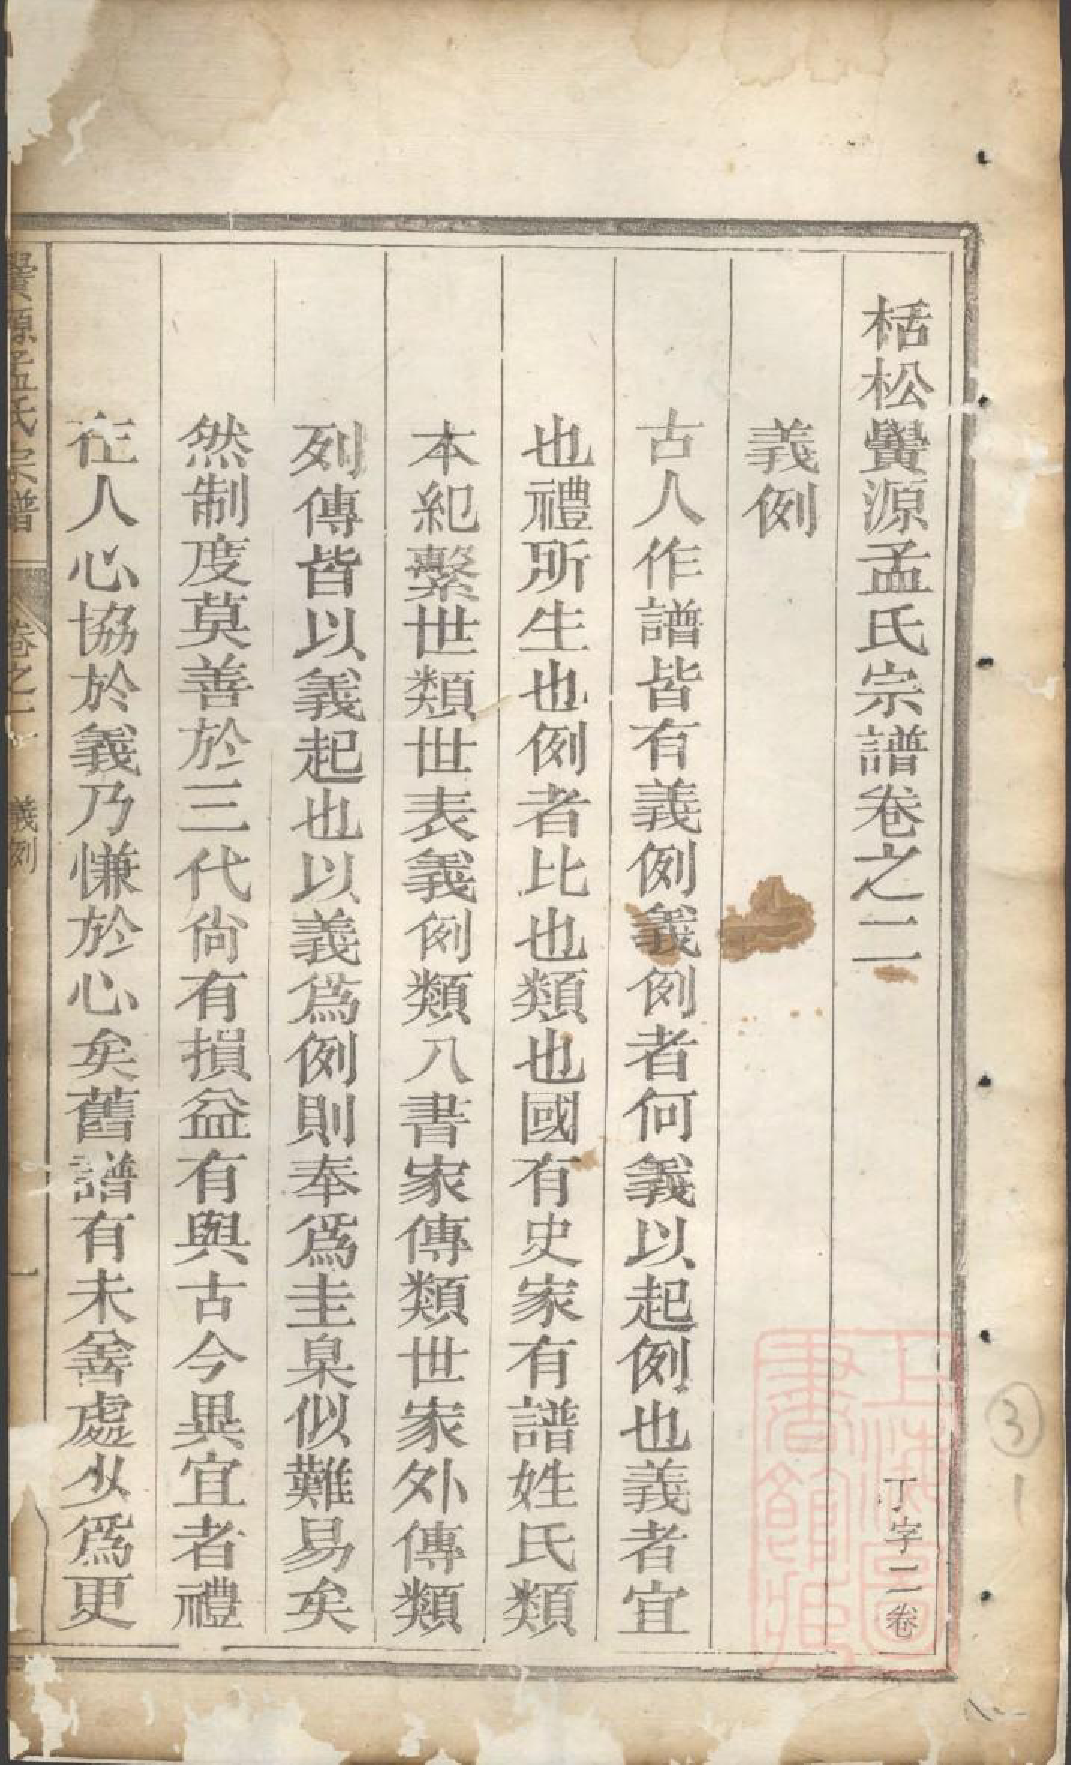 栝松黌源孟氏宗譜卷之二
丁字二卷
義例
古人作譜皆有義例義例者何義以起例也義者宜
也禮所生也例者比也類也國有史家有譜姓氏類
本紀繫世類世表義例類八書家傳類世家外傳類
列傳皆以義起也以義爲例則奉爲圭臬似難易矣
然制度莫善於三代尙有損益有與古今異宜者禮
在人心協於義乃慊於心矣舊譜有未善處少爲更
黌源孟氏宗譜
卷之二
義例
一
上海圖書館藏
③
1